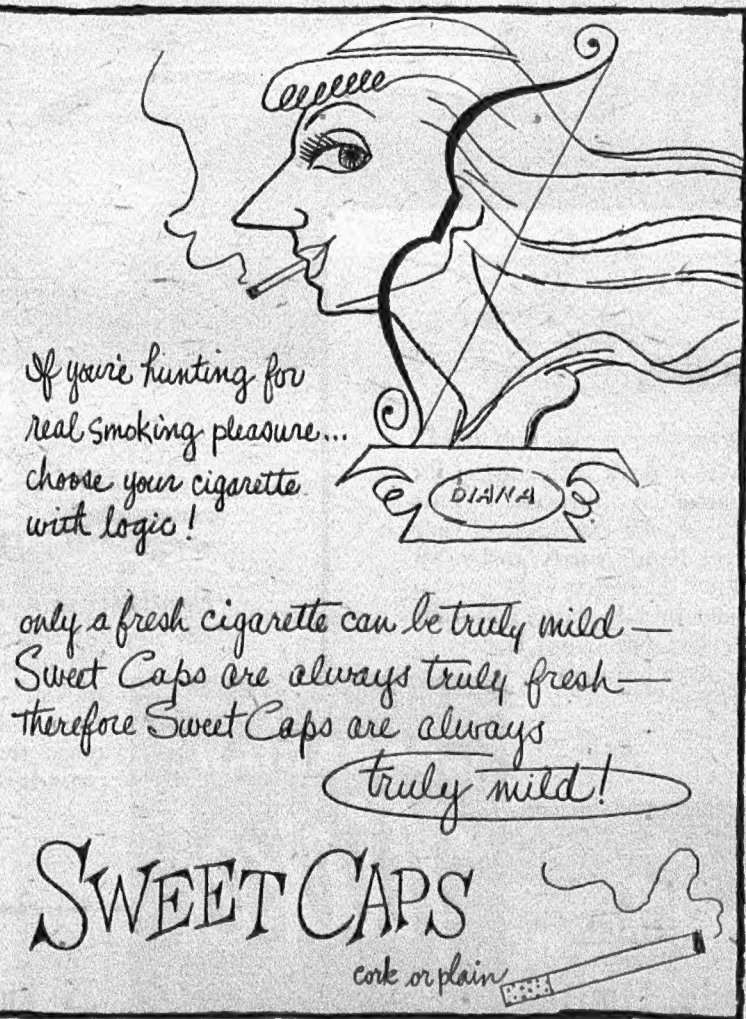 If you're hunting for
real smoking pleasure...
choose your cigarette
with logic!
DIANA
only a fresh cigarette can be truly mild —
Sweet Caps are always truly fresh —
therefore Sweet Caps are always
truly mild!
SWEET CAPS
cork or plain